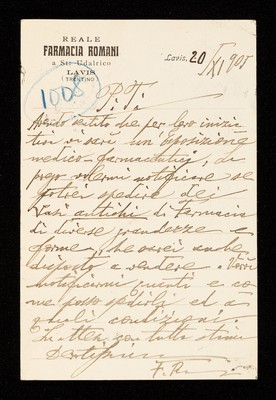 REALE
FARMACIA ROMANI
a St: Udalrico
LAVIS
TRENTINO
Lavis, 20/XI 190
1008
P. T.
Avendo sentito che per loro inizia
tiva vi sarà un' esposizione
medico-farmaceutica, di
prego volermi notificare se
potrei spedire dei
Vasi antichi di farmacia
di diverse grandezze e
forme, che sarei anche
disposto a vendere.
notificarmi quanti e co
me posso spedirli ed a
quali condizioni.
In attesa con tutta stima